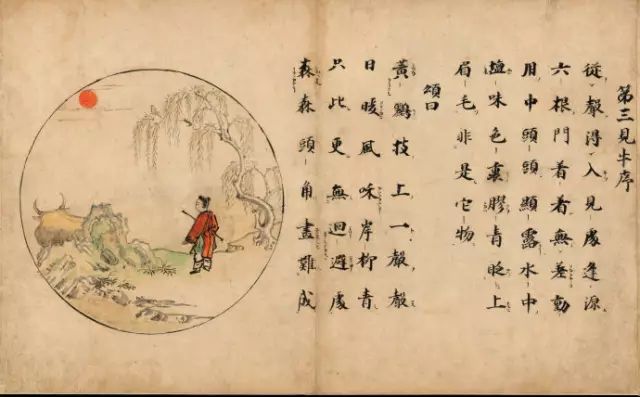 第三見牛序
從聲得入見處逢源
六根門着着無差動
用中頭頭顯露水中
鹽味色裏膠青眨上
眉毛非是它物
頌曰
黃鸝枝上一聲聲
日暖風和岸柳青
只此更無迴避處
森森頭角畫難成